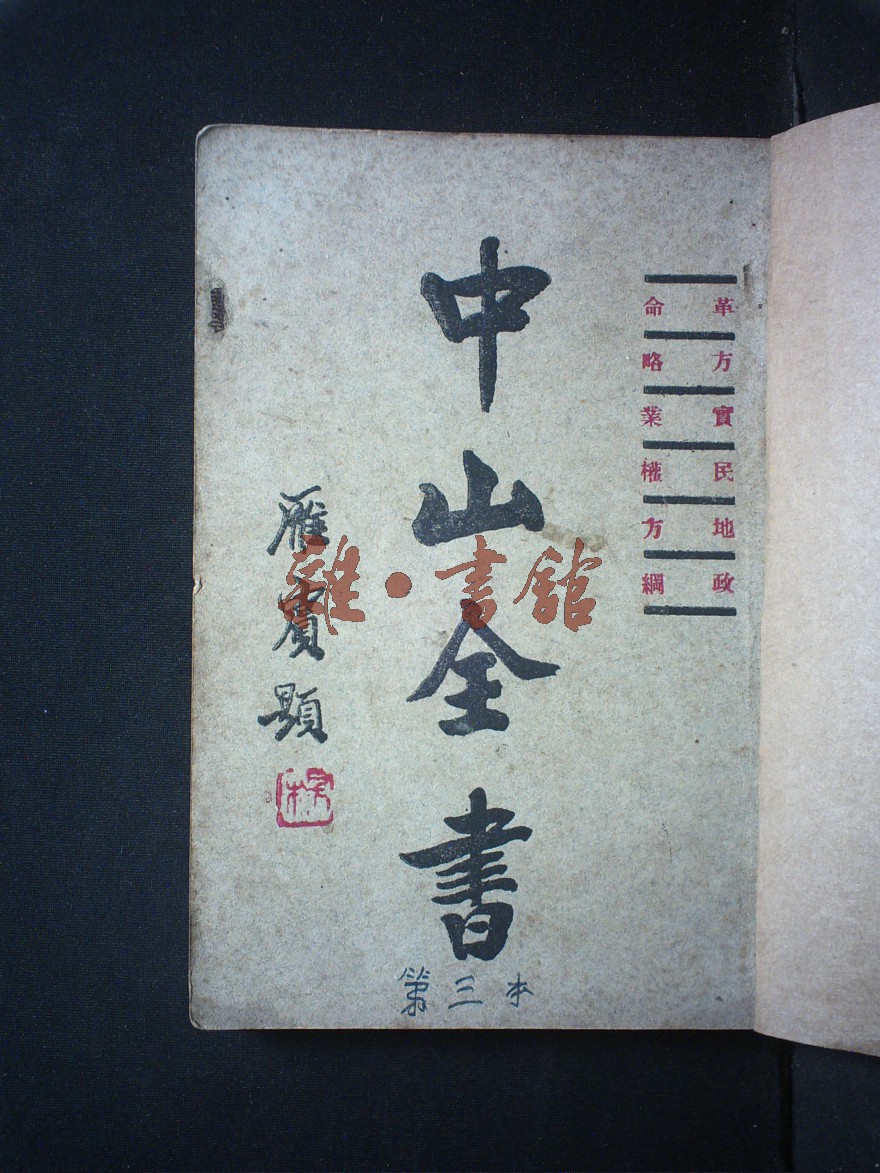 革命
方略
實業
民權
地方
政綱
中山全書
雁賓題
第三本
雜·書館